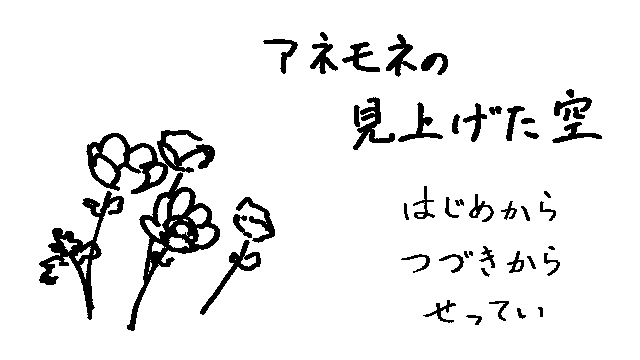 アネモネの
見上げた空
はじめから
つづきから
せってい